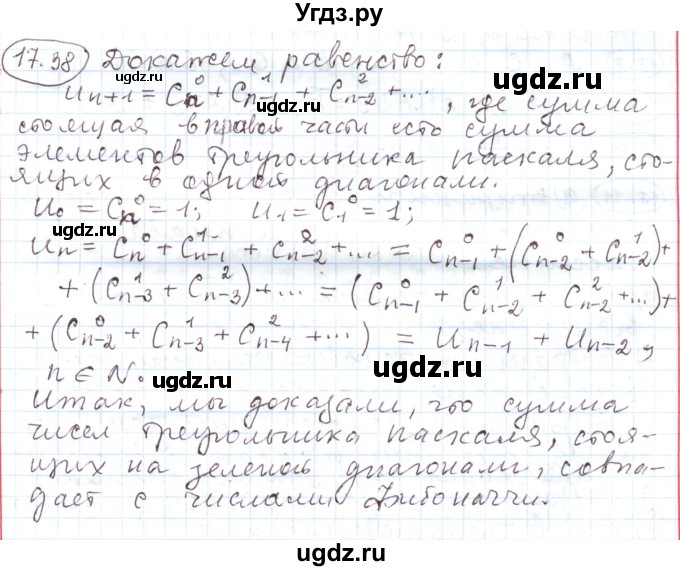 Угдз.ру
17.38 Докажем равенство:
uₙ₊₁ = Cₙ⁰ + Cₙ₋₁¹ + Cₙ₋₂² + ..., где сумма
стоящая в правой части есть сумма
элементов треугольника паскаля, сто-
ящих в одной диагонали.
u₀ = Cₙ⁰ = 1; u₁ = C₁⁰ = 1;
uₙ = Cₙ⁰ + Cₙ₋₁¹ + Cₙ₋₂² + ... = Cₙ₋₁⁰ + (Cₙ₋₂⁰ + Cₙ₋₂¹) +
+ (Cₙ₋₃¹ + Cₙ₋₃²) + ... = (Cₙ₋₁⁰ + Cₙ₋₂¹ + Cₙ₋₂² + ...) +
+ (Cₙ₋₂⁰ + Cₙ₋₃¹ + Cₙ₋₄² + ...) = uₙ₋₁ + uₙ₋₂,
n ∈ N.
Итак, мы доказали, что сумма
чисел треугольника паскаля, стоя-
щих на зеленой диагонали, совпа-
дает с числами Фибоначчи.
uгдz.ru